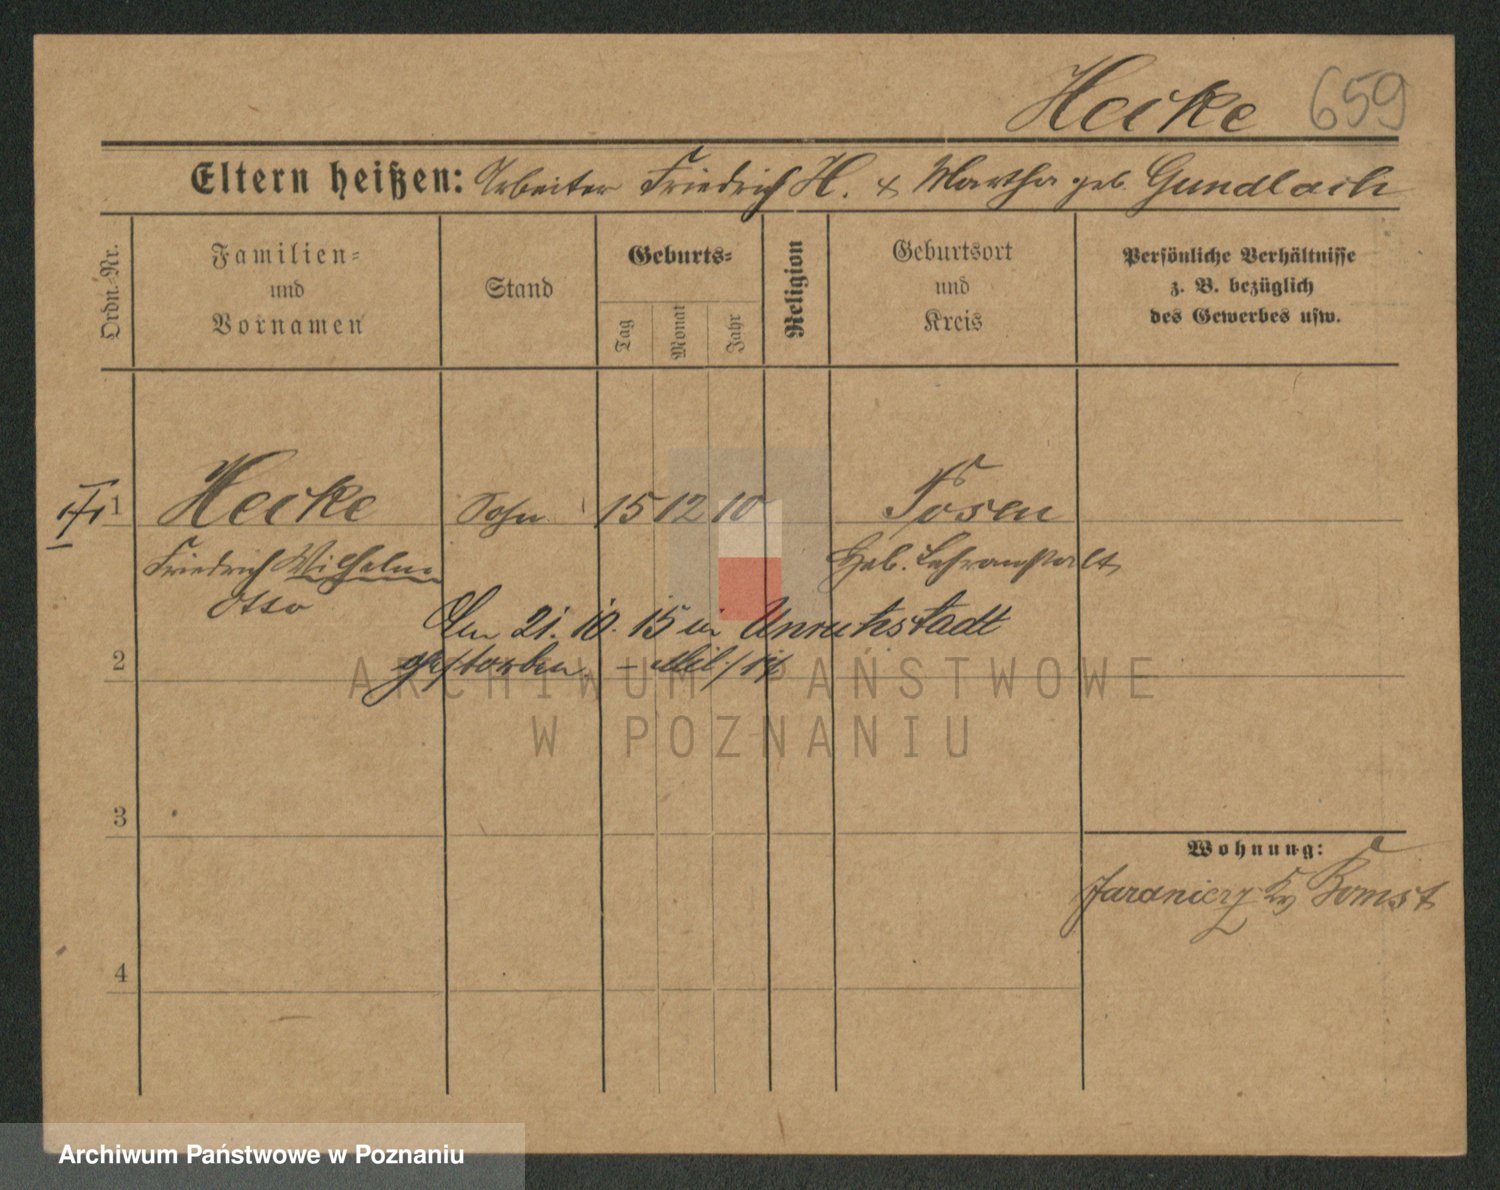 Heike 659
Eltern heißen: Arbeiter Friedrich H. & Martha geb. Gundlach
Ordn.-Nr.
Familien=
und
Vornamen
Stand
Geburts=
Tag
Monat
Jahr
Religion
Geburtsort
und
Kreis
Persönliche Verhältnisse
z. B. bezüglich
des Gewerbes usw.
1 Heike Sohn 15 12 10 Posen
Friedrich Wilhelm Heb. Lehranstalt
Otto
Am 21. 10. 15 in Unruhstadt
2 gestorben.
ARCHIWUM PAŃSTWOWE
W POZNANIU
3
Wohnung:
Bomst
4
Archiwum Państwowe w Poznaniu